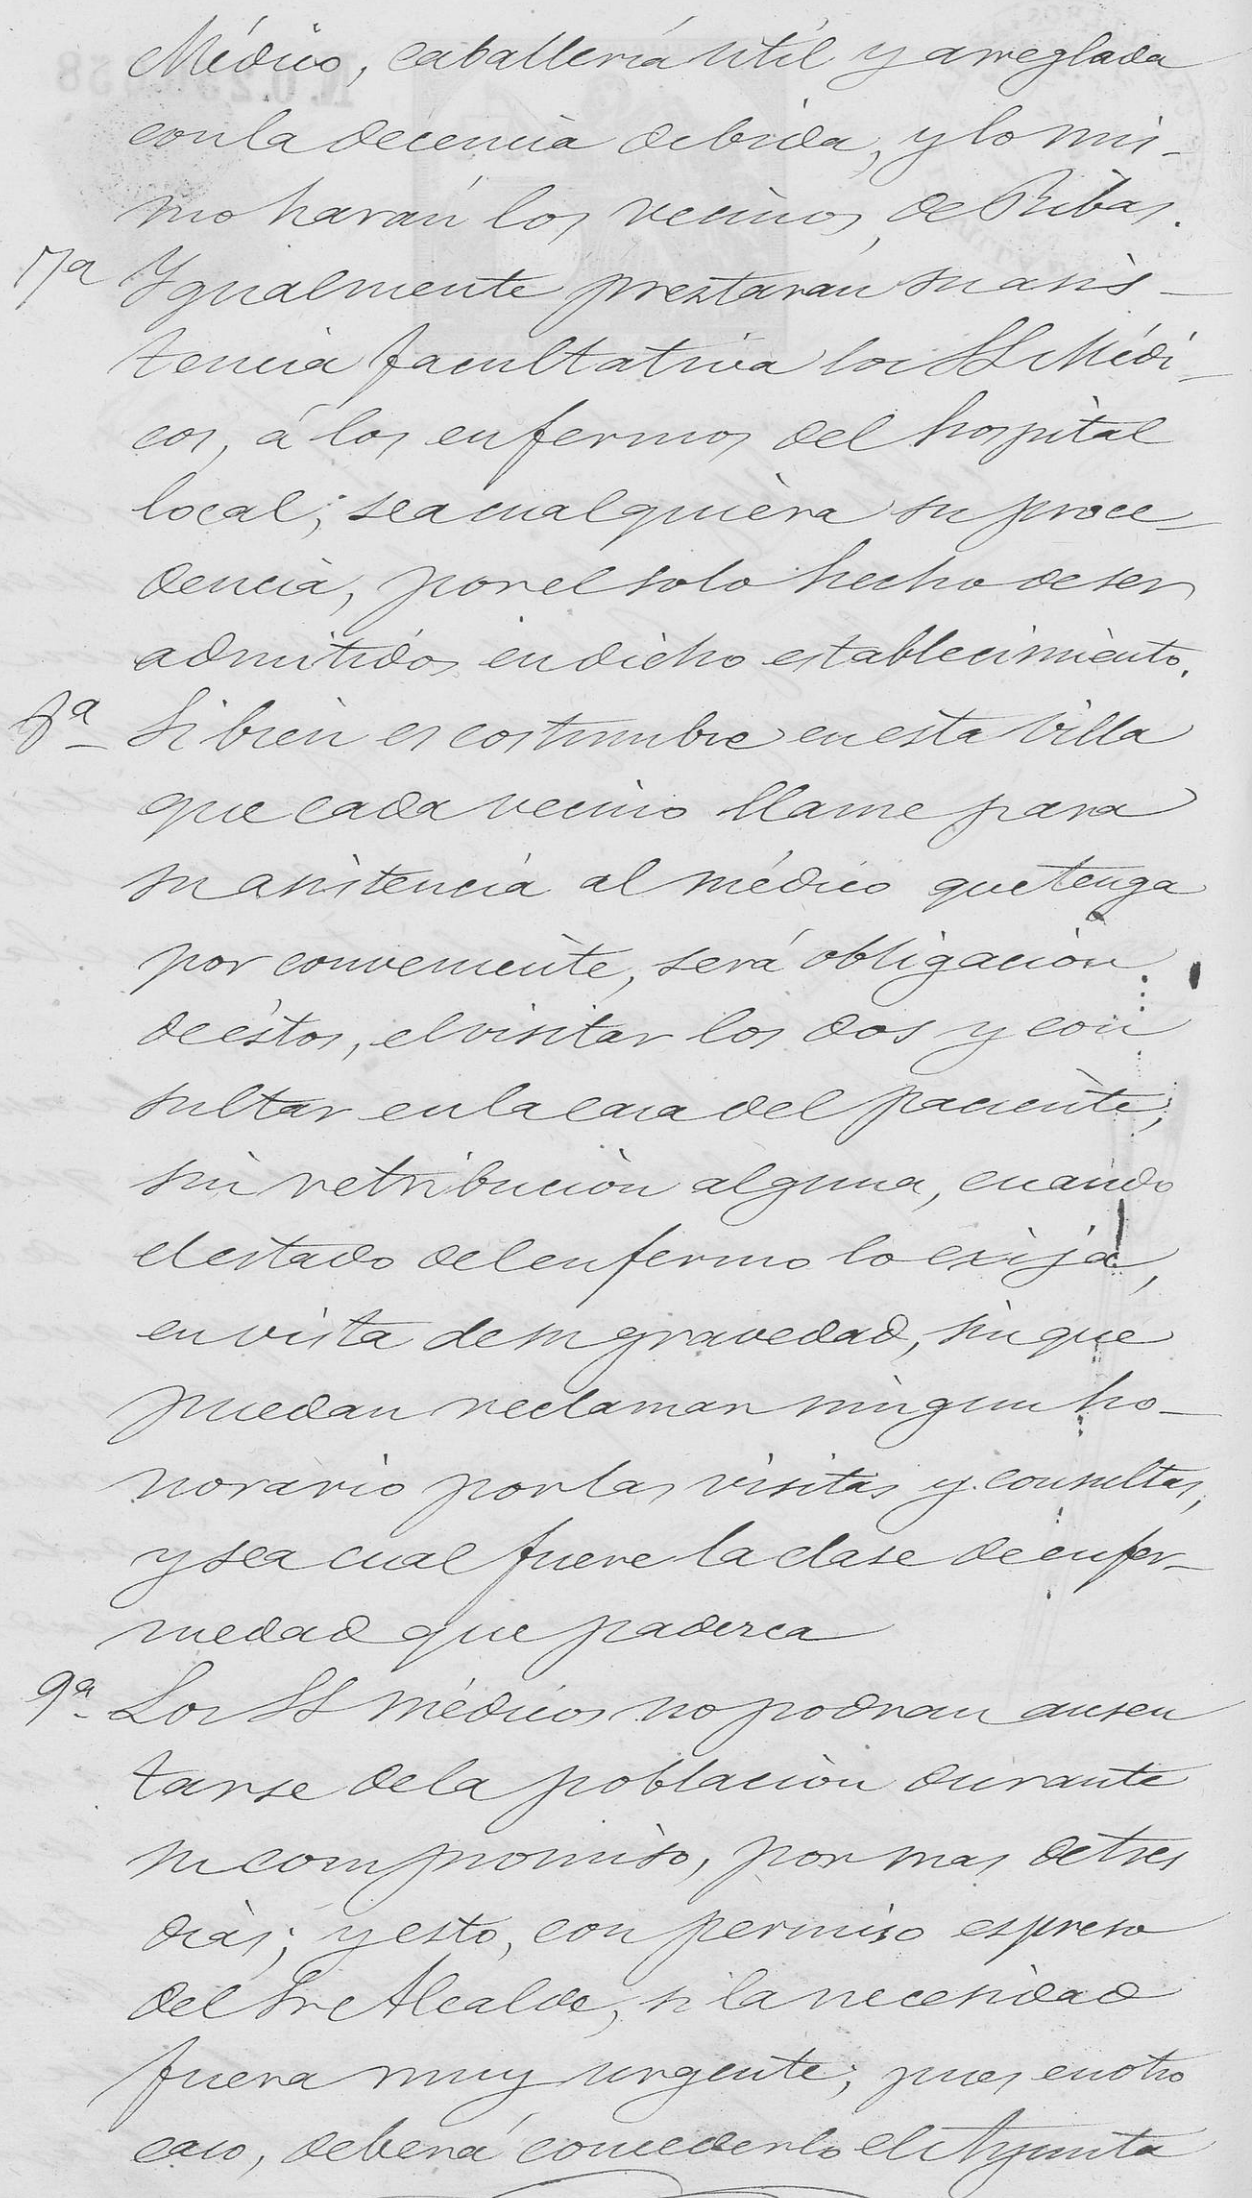 Médico, caballería útil y arreglada
con la decencia debida, y lo mis-
mo harán los vecinos de Ribas.
7ª Ygualmente preztarán su asis-
tencia facultativa los SS Médi-
cos, á los enfermos del hospital
local; sea cualquiera su proce-
dencia, por el solo hecho de ser
admitidos en dicho establecimiento.
8ª Si bien es costumbre en esta Villa
que cada vecino llame para
su asistencia al médico que tenga
por conveniente, será obligacion
de éstos, el visitar los dos y con
sultar en la casa del paciente,
sin retribucion alguna, cuando
el estado del enfermo lo exija,
en vista de su gravedad, sin que
puedan reclamar ningun ho-
norario por las visitas y consultas,
y sea cual fuere la clase de enfer-
medad que padezca
9ª Los SS médicos no podran ausen
tarse de la poblacion durante
su compromiso, por mas de tres
dias; y esto, con permiso espreso
del Sr Alcalde, si la necesidad
fuera muy urgente; pues en otro
caso, deberá concederlo el Ayunta